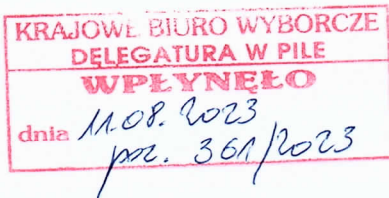 KRAJOWE BIURO WYBORCZE
DELEGATURA W PILE
WPŁYNĘŁO
dnia 11.08.2023
poz. 361/2023